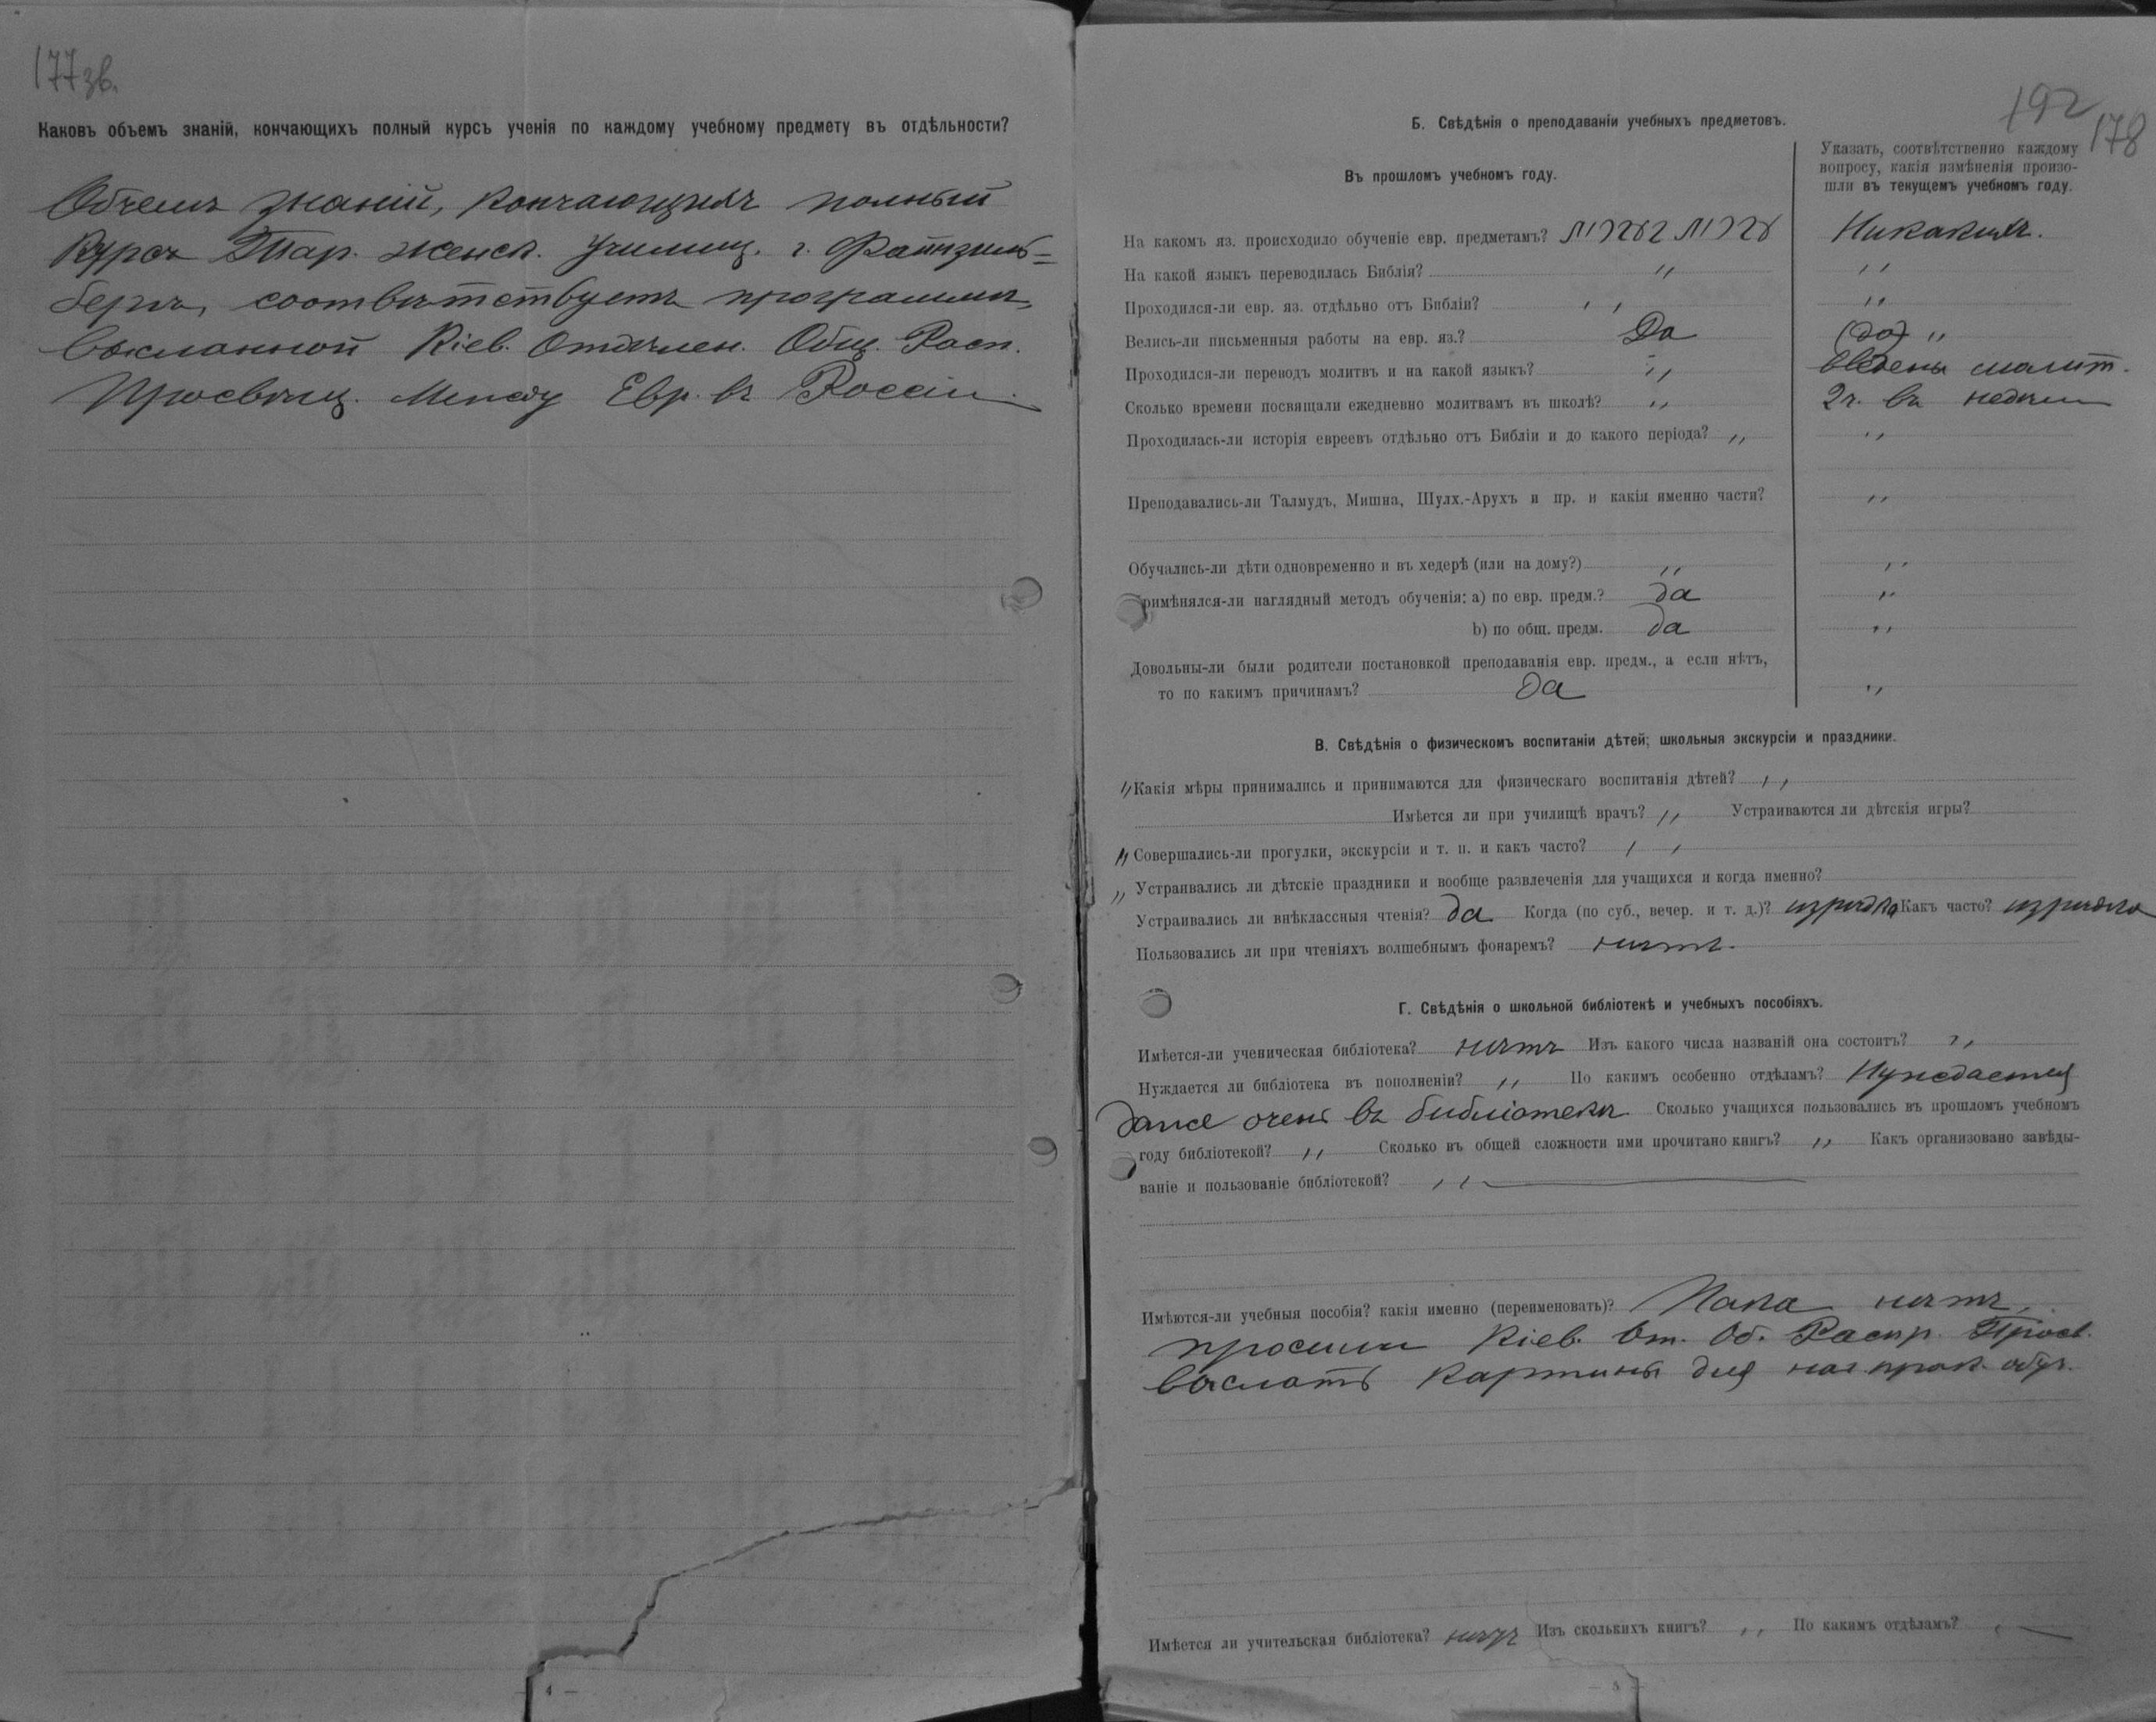 177зв.
Каковъ объемъ знаній, кончающихъ полный курсъ ученія по каждому учебному предмету въ отдѣльности?
Объемъ знаній, кончающихъ полный
Курсъ Тар. женск. Училищ. г. Фатизиль=
бергъ, соотвѣтствуетъ программѣ,
высланной Кіев. Отдѣлен. Общ. Расп.
Просвѣщ. Между Евр. въ Россіи.
— 4 —
192
178
Б. Свѣдѣнія о преподаваніи учебныхъ предметовъ.
Въ прошломъ учебномъ году.
Указать, соотвѣтственно каждому
вопросу, какія измѣненія произо-
шли въ текущемъ учебномъ году.
На какомъ яз. происходило обученіе евр. предметамъ? עברית בעברית Никакихъ.
На какой языкъ переводилась Библія? " "
Проходился-ли евр. яз. отдѣльно отъ Библіи? " "
Велись-ли письменныя работы на евр. яз.? Да (да) "
Проходился-ли переводъ молитвъ и на какой языкъ? " введены молит.
Сколько времени посвящали ежедневно молитвамъ въ школѣ? " 2 ч. въ недѣлю
Проходилась-ли исторія евреевъ отдѣльно отъ Библіи и до какого періода? " "
Преподавались-ли Талмудъ, Мишна, Шулх.-Арухъ и пр. и какія именно части? "
Обучались-ли дѣти одновременно и въ хедерѣ (или на дому?) " "
римѣнялся-ли наглядный методъ обученія: а) по евр. предм.? да "
b) по общ. предм. да "
Довольны-ли были родители постановкой преподаванія евр. предм., а если нѣтъ,
то по какимъ причинамъ? Да "
В. Свѣдѣнія о физическомъ воспитаніи дѣтей; школьныя экскурсіи и праздники.
" Какія мѣры принимались и принимаются для физическаго воспитанія дѣтей? "
Имѣется ли при училищѣ врачъ? " Устраиваются ли дѣтскія игры?
" Совершались-ли прогулки, экскурсіи и т. п. и какъ часто? "
" Устраивались ли дѣтскіе праздники и вообще развлеченія для учащихся и когда именно?
Устраивались ли внѣклассныя чтенія? Да Когда (по суб., вечер. и т. д.)? изрѣдка Какъ часто? изрѣдка
Пользовались ли при чтеніяхъ волшебнымъ фонаремъ? нѣтъ.
Г. Свѣдѣнія о школьной библіотекѣ и учебныхъ пособіяхъ.
Имѣется-ли ученическая библіотека? нѣтъ Изъ какого числа названій она состоитъ? "
Нуждается ли библіотека въ пополненіи? " По какимъ особенно отдѣламъ? Нуждается
даже очень въ библіотекѣ Сколько учащихся пользовались въ прошломъ учебномъ
году библіотекой? " Сколько въ общей сложности ими прочитано книгъ? " Какъ организовано завѣды-
ваніе и пользованіе библіотекой? "
Имѣются-ли учебныя пособія? какія именно (переименовать)? Пока нѣтъ,
просили Кіев. От. Об. Распр. Просв.
выслать картины для
Имѣется ли учительская библіотека? нѣтъ Изъ сколькихъ книгъ? " По какимъ отдѣламъ? "
— 5 —